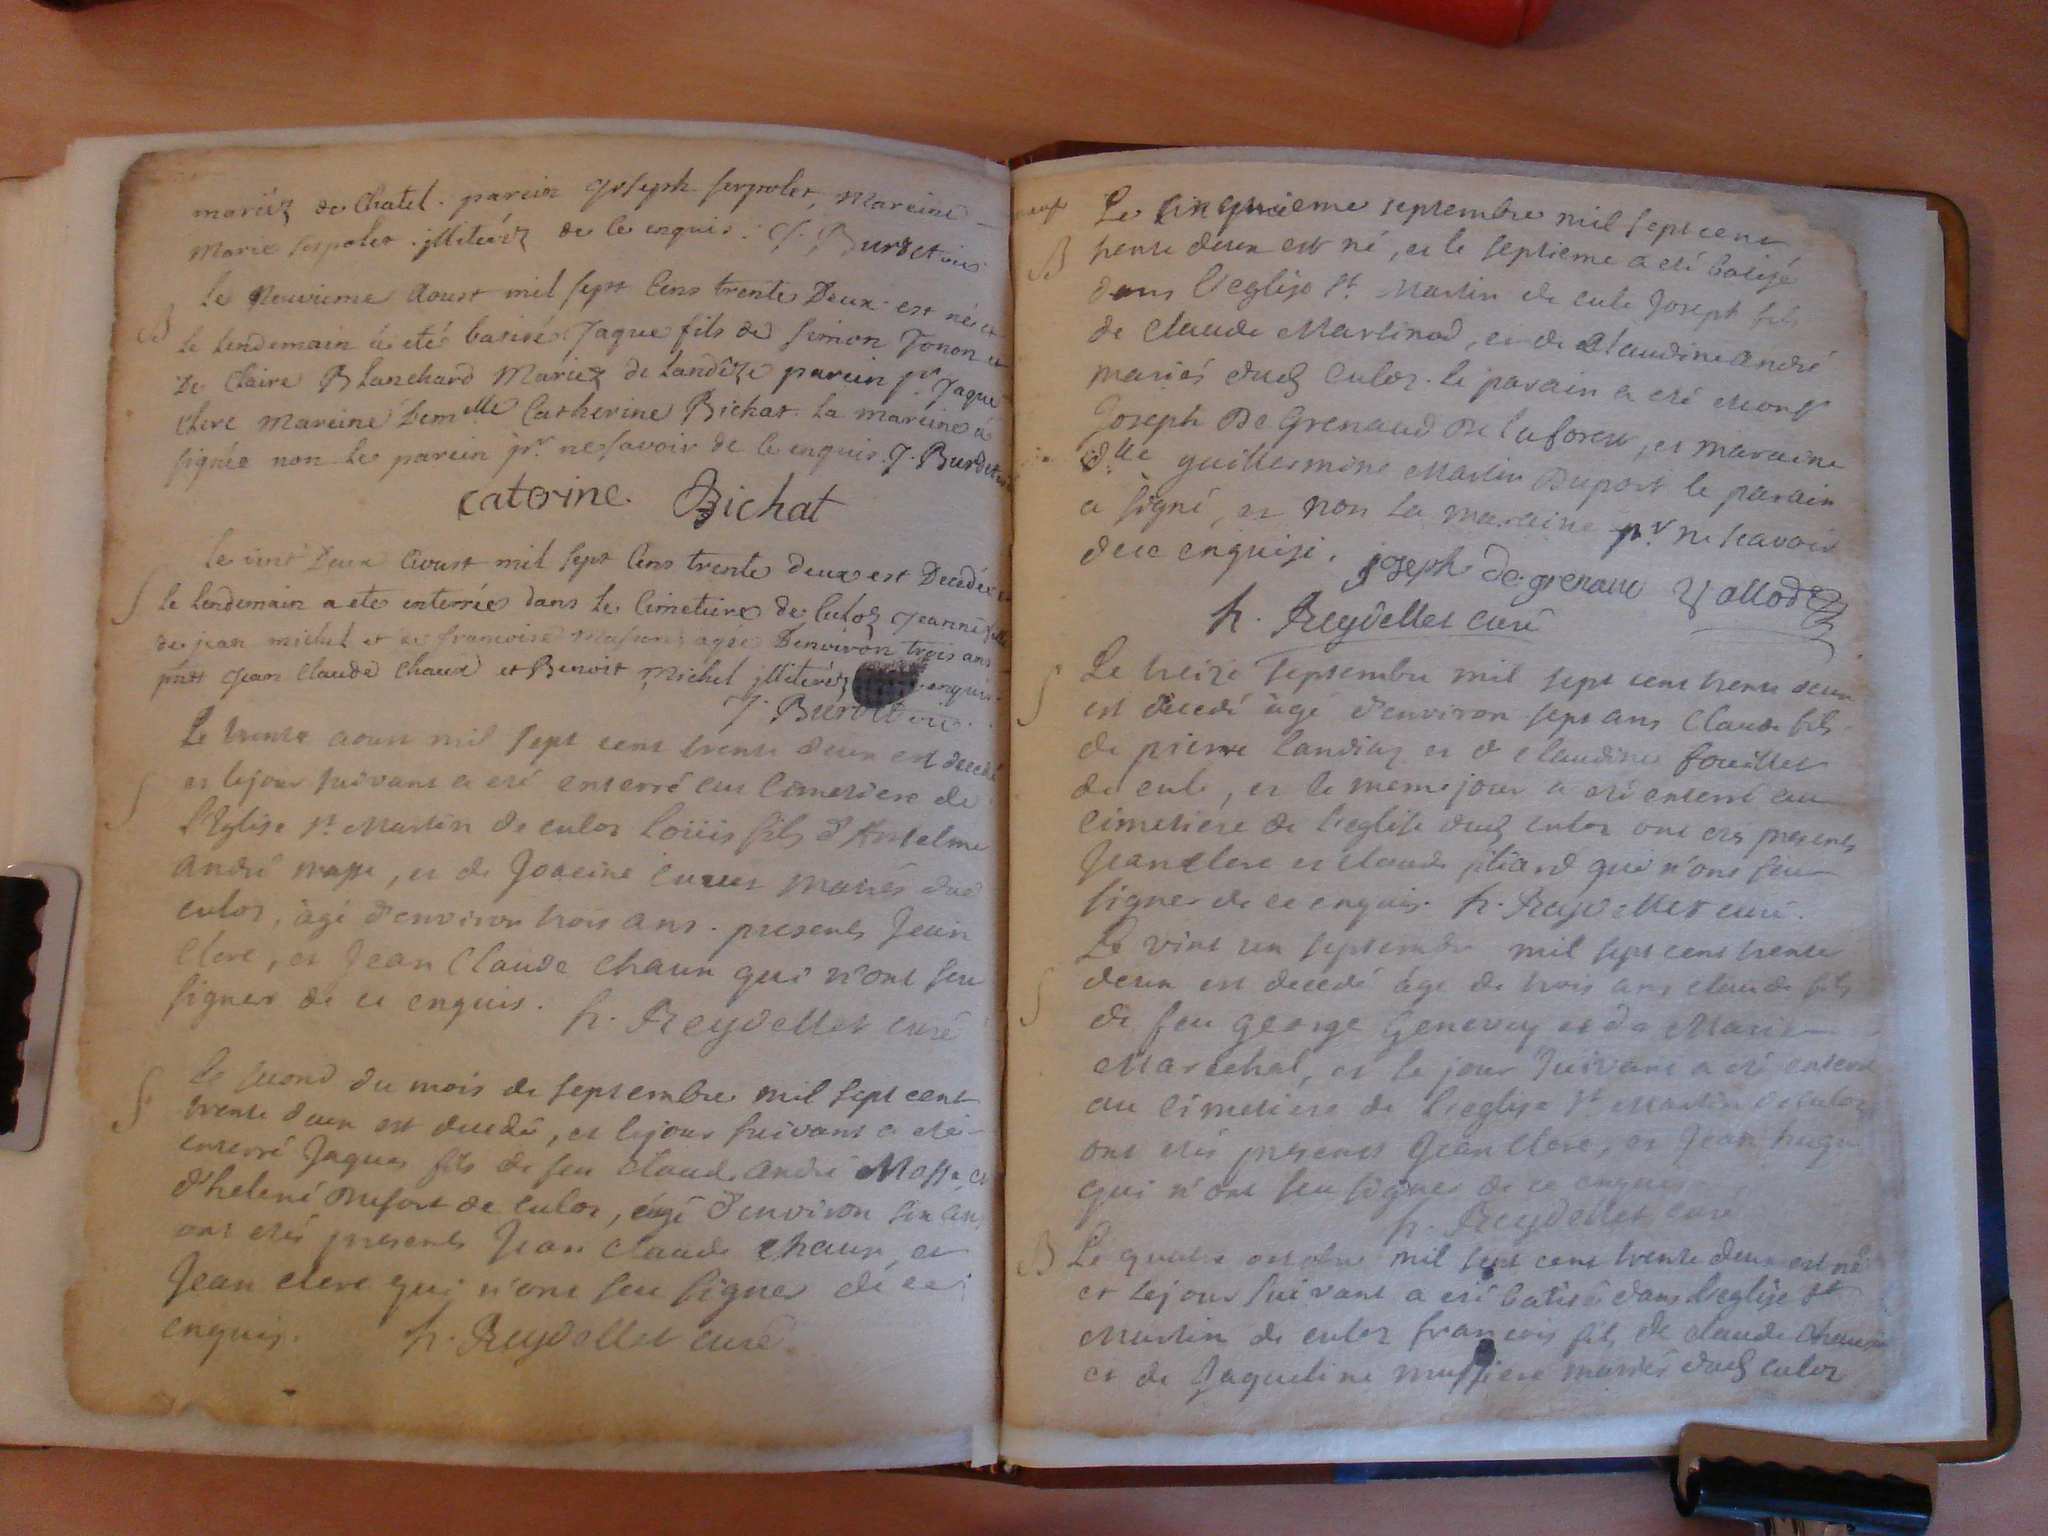 mariéz de Chatel. parein Joseph serpolet, Mareine
Marie serpolet. illiteréz de ce enquis. J. Burdet vic
B
Le Neuvieme Aoust mil sept Cens trente Deux est né et
le lendemain à eté batisé Jaque fils de simon Jonon et
De Claire Blanchard Mariéz de Landéze parein sr. Jaque
Clerc Mareine Demelle Catherine Bichat. la mareine à
signée non le parein pr. ne savoir de ce enquis. J. Burdet
Caterine. Bichat
S
le vint Deux Aoust mil sept Cens trente deux est Decedée et
le lendemain a eté enterrée dans le Cimetiere de Culoz Jeanne fille
de jean michel et de francoise agée D'environ trois ans
pnts Jean Claude Chaux et Benoit Michel illiteréz enquis.
J. Burdet vic.
S
Le trente aoust mil sept cent trente deux est decedé
et le jour suivant a eté enterré au Cimetiere de
l'Eglise st. Martin de culoz Loüis fils d'Anselme
André masse, et de Joacine mariés dud
culoz, àgé d'environ trois ans. presents Jean
Clerc, et Jean Claude Chaux qui n'ont seu
signer de ce enquis. h. Reydellet curé
S
Le second du mois de septembre mil sept cent
trente deux est decedé, et le jour suivant a eté
enterré Jaques fils de feu Claude André Masse, et
d'helené Dufort de culoz, àgé d'environ six ans
ont etés presents Jean Claude Chaux, et
Jean clerc qui n'ont seu signer de ce
enquis. h. Reydellet curé
B
Le cinquieme septembre mil sept cent
trente deux est né, et le septieme a eté batisé
dans l'eglise st. Martin de culo Joseph fils
de Claude Martinod, et de Claudine André
mariés dud Culoz. le parain a eté Monsr
Joseph De Grenaud De laforest, et maraine
dlle guillermine Martin Duport le parain
a signé, et non la maraine pr. ne scavoir
de ce enquise.
joseph de grenaud
h. Reydellet curé
S
Le treize septembre mil sept cent trente deux
est decedé àgé d'environ sept ans Claude fils
de pierre Landiaz et d Claudine fouillet
de culo, et le meme jour a eté enterré au
cimetiere de l'eglise dud culoz ont etés presents
Jean clerc et claude qui n'ont seu
signer de ce enquis. h. Reydellet curé.
S
Le vint un septembre mil sept cent trente
deux est decedé àgé de trois ans claude fils
de feu George Genevey et de Marie
Marechal, et le jour suivant a eté enterré
au cimetiere de l'eglise st Martin de culoz
ont etés presents Jean Clerc, et Jean hugu
qui n'ont seu signer de ce enquis
h. Reydellet curé
B
Le quatre octobre mil sept cent trente deux est né
et le jour suivant a eté batisé dans l'eglise st
Martin de culoz francois fils de Claude Chaux
et de Jaqueline mussiere mariés dud culoz